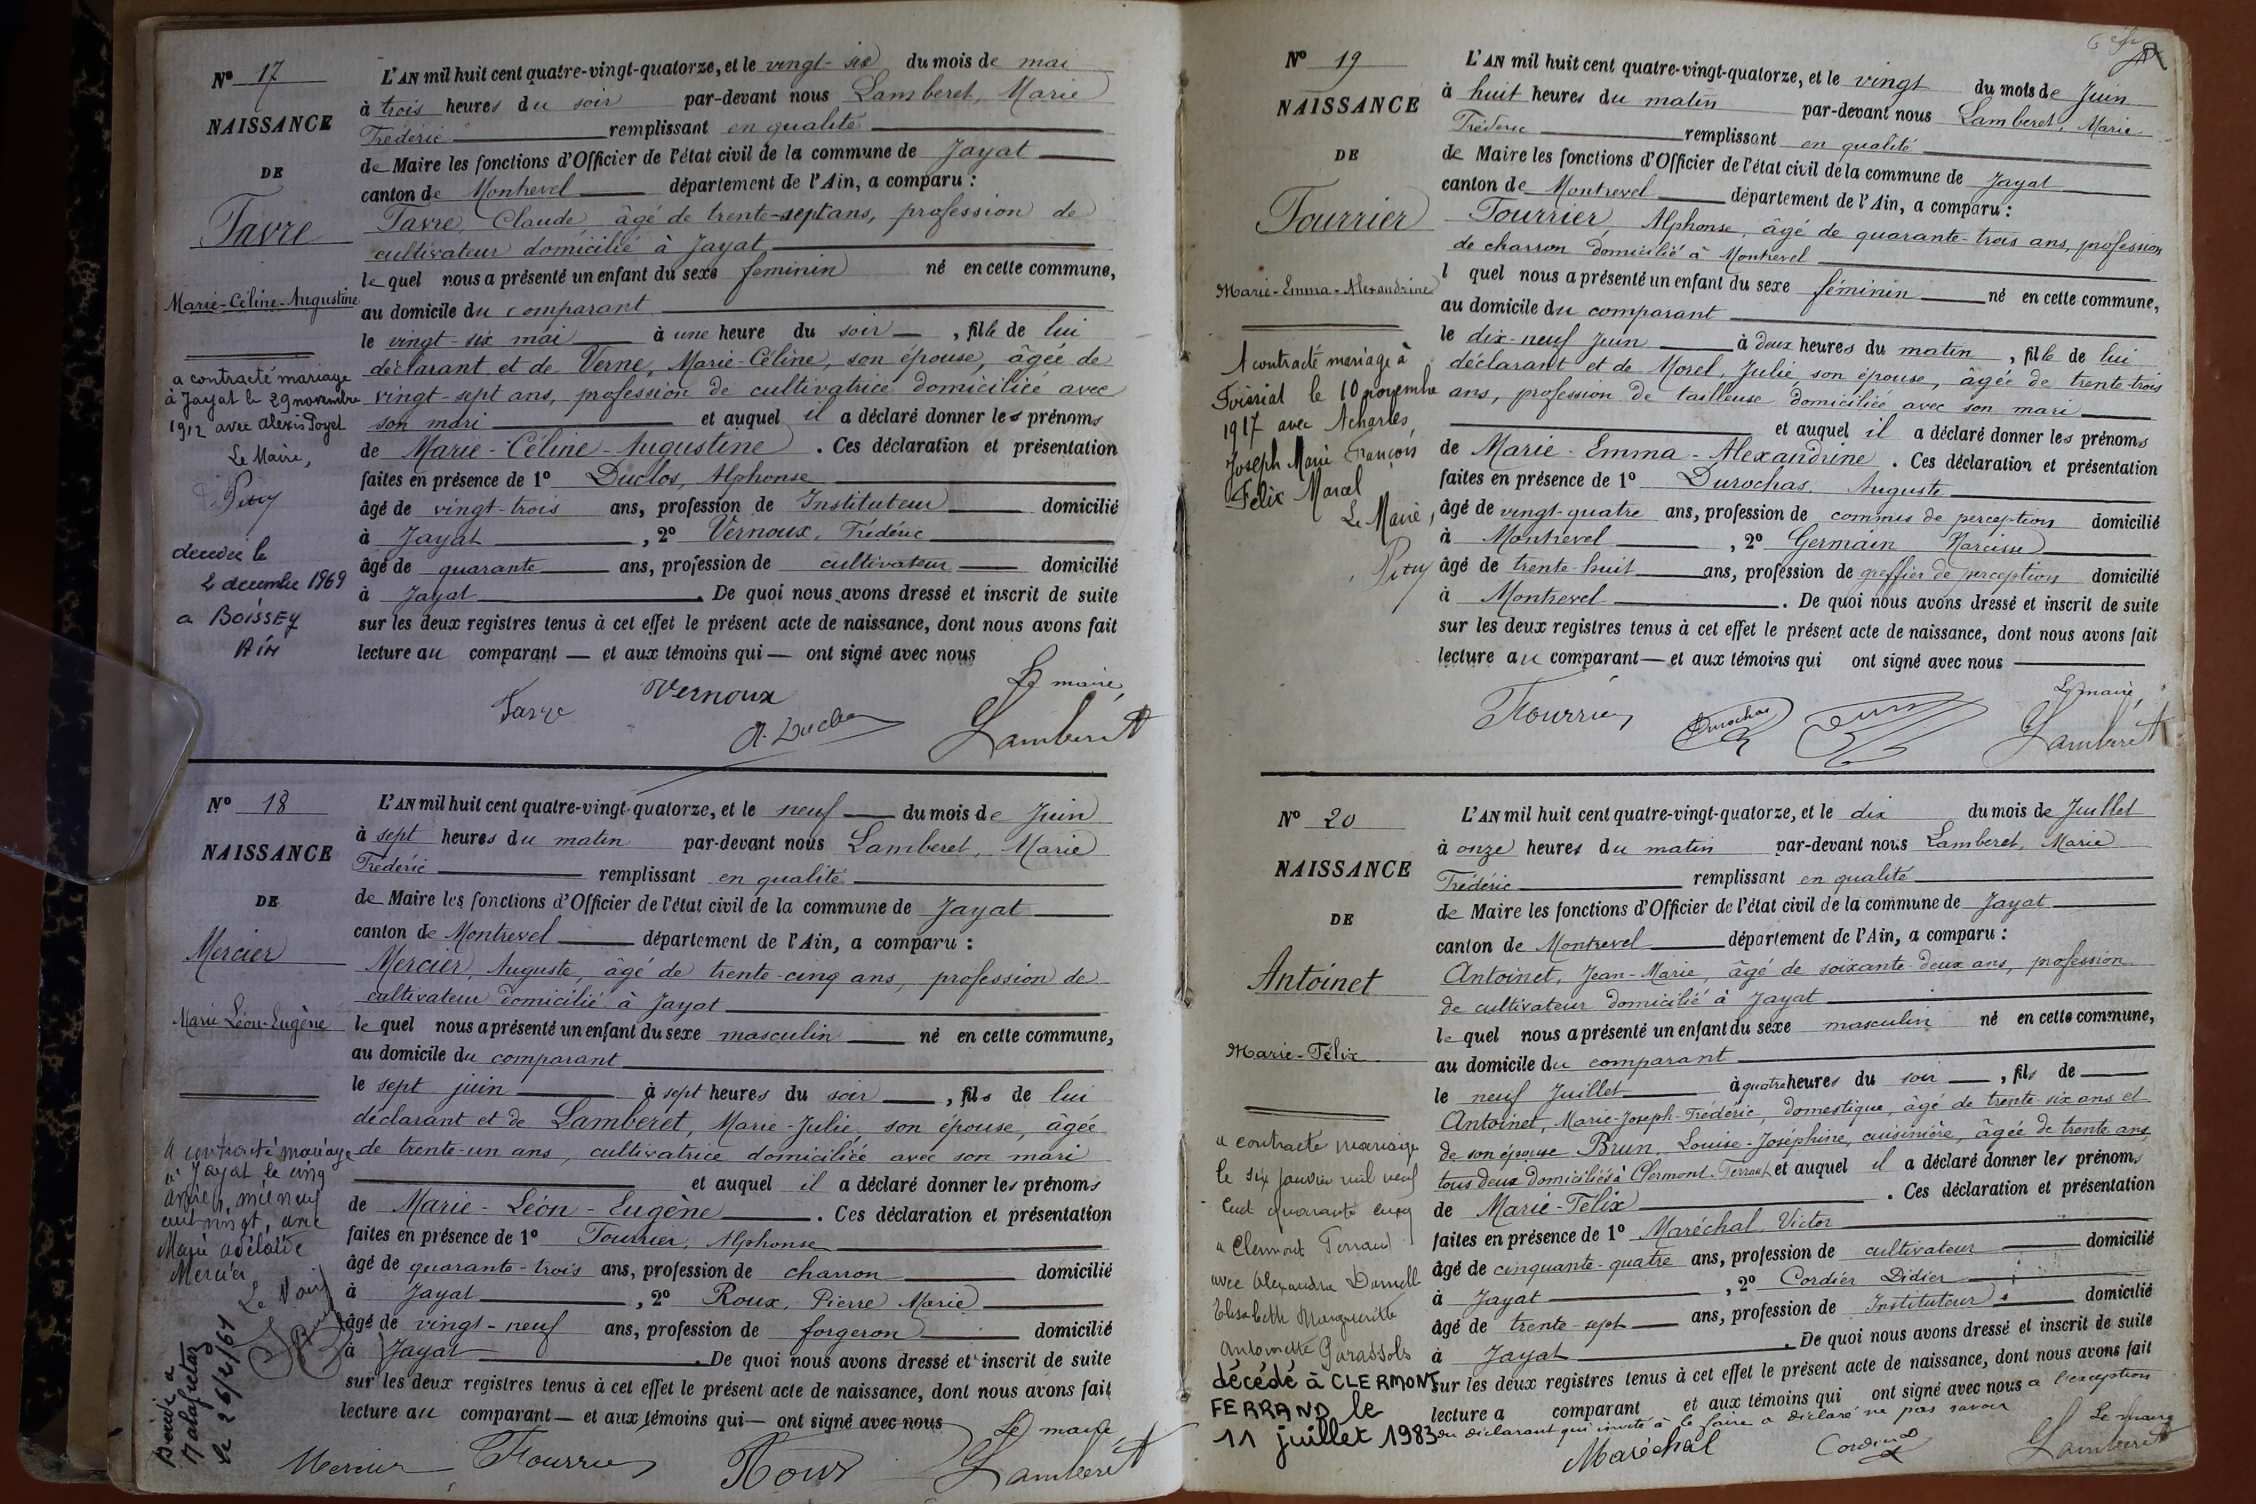 Nº 17
NAISSANCE
DE
Favre
Marie-Céline-Augustine
a contracté mariage
à Jayat le 29 novembre
1912 avec Alexis Poyet
Le Maire,
Pitry
décédée le
2 decembre 1969
a BOISSEY
AIN
L'AN mil huit cent quatre-vingt-quatorze, et le vingt-six du mois de mai
à trois heures du soir par-devant nous Lamberet, Marie
Frédéric remplissant en qualité
de Maire les fonctions d'Officier de l'état civil de la commune de Jayat
canton de Montrevel département de l'Ain, a comparu :
Favre, Claude, âgé de trente-sept ans, profession de
cultivateur domicilié à Jayat
lequel nous a présenté un enfant du sexe féminin né en cette commune,
au domicile du comparant
le vingt-six mai à une heure du soir , fille de lui
déclarant et de Verne, Marie-Céline, son épouse, âgée de
vingt-sept ans, profession de cultivatrice domiciliée avec
son mari et auquel il a déclaré donner les prénoms
de Marie-Céline-Augustine . Ces déclaration et présentation
faites en présence de 1º Duclos, Alphonse
âgé de vingt-trois ans, profession de Instituteur domicilié
à Jayat , 2º Vernoux, Frédéric
âgé de quarante ans, profession de cultivateur domicilié
à Jayat . De quoi nous avons dressé et inscrit de suite
sur les deux registres tenus à cet effet le présent acte de naissance, dont nous avons fait
lecture au comparant et aux témoins qui ont signé avec nous
Le maire,
Favre Vernoux A. Duclos Lamberet
Nº 18
NAISSANCE
DE
Mercier
Marie Léon-Eugène
A contracté mariage
à Jayat le cinq
mil neuf
cent vingt, avec
Marie Adélaïde
Mercier
Le Maire
Décédé à
Malafretaz
le 26/2/61
L'AN mil huit cent quatre-vingt-quatorze, et le neuf du mois de Juin
à sept heures du matin par-devant nous Lamberet, Marie
Frédéric remplissant en qualité
de Maire les fonctions d'Officier de l'état civil de la commune de Jayat
canton de Montrevel département de l'Ain, a comparu :
Mercier, Auguste, âgé de trente-cinq ans, profession de
cultivateur domicilié à Jayat
lequel nous a présenté un enfant du sexe masculin né en cette commune,
au domicile du comparant
le sept juin à sept heures du soir , fils de lui
déclarant et de Lamberet, Marie-Julie, son épouse, âgée
de trente-un ans, cultivatrice domiciliée avec son mari
et auquel il a déclaré donner les prénoms
de Marie-Léon-Eugène . Ces déclaration et présentation
faites en présence de 1º Fourrier, Alphonse
âgé de quarante-trois ans, profession de charron domicilié
à Jayat , 2º Roux, Pierre Marie
âgé de vingt-neuf ans, profession de forgeron domicilié
à Jayat . De quoi nous avons dressé et inscrit de suite
sur les deux registres tenus à cet effet le présent acte de naissance, dont nous avons fait
lecture au comparant et aux témoins qui ont signé avec nous
Le maire,
Mercier Fourrier Roux Lamberet
Nº 19
NAISSANCE
DE
Fourrier
Marie-Emma-Alexandrine
A contracté mariage à
Foissiat le 10 novembre
1917 avec Acharles,
Joseph Marie François
Felix Marcel
Le Maire,
Pitry
L'AN mil huit cent quatre-vingt-quatorze, et le vingt du mois de Juin
à huit heures du matin par-devant nous Lamberet, Marie
Fréderic remplissant en qualité
de Maire les fonctions d'Officier de l'état civil de la commune de Jayat
canton de Montrevel département de l'Ain, a comparu :
Fourrier, Alphonse, âgé de quarante-trois ans, profession
de charron domicilié à Montrevel
l quel nous a présenté un enfant du sexe féminin né en cette commune,
au domicile du comparant
le dix-neuf Juin à deux heures du matin , fille de lui
déclarant et de Morel, Julie, son épouse, âgée de trente-trois
ans, profession de tailleuse domiciliée avec son mari
et auquel il a déclaré donner les prénoms
de Marie-Emma-Alexandrine . Ces déclaration et présentation
faites en présence de 1º Durochas, Auguste
âgé de vingt-quatre ans, profession de commis de perception domicilié
à Montrevel , 2º Germain Narcisse
âgé de trente-huit ans, profession de greffier de perception domicilié
à Montrevel . De quoi nous avons dressé et inscrit de suite
sur les deux registres tenus à cet effet le présent acte de naissance, dont nous avons fait
lecture au comparant et aux témoins qui ont signé avec nous
Le maire,
Fourrier Durochas Lamberet
Nº 20
NAISSANCE
DE
Antoinet
Marie-Félix
a contracté mariage
le six janvier mil neuf
cent quarante cinq
a Clermont Ferrand
avec Alexandra
Elisabeth Marguerite
Antoinette Garassols
décédé à CLERMONT
FERRAND le
11 juillet 1983
L'AN mil huit cent quatre-vingt-quatorze, et le dix du mois de Juillet
à onze heures du matin par-devant nous Lamberet, Marie
Frédéric remplissant en qualité
de Maire les fonctions d'Officier de l'état civil de la commune de Jayat
canton de Montrevel département de l'Ain, a comparu :
Antoinet, Jean-Marie, âgé de soixante-deux ans, profession
de cultivateur domicilié à Jayat
lequel nous a présenté un enfant du sexe masculin né en cette commune,
au domicile du comparant
le neuf Juillet à quatre heures du soir , fils de
Antoinet, Marie-Joseph-Frédéric, domestique, âgé de trente-six ans et
de son épouse Brun, Louise-Joséphine, cuisinière, âgée de trente ans,
tous deux domiciliés à Clermont-Ferrand et auquel il a déclaré donner les prénoms
de Marie-Félix . Ces déclaration et présentation
faites en présence de 1º Maréchal, Victor
âgé de cinquante-quatre ans, profession de cultivateur domicilié
à Jayat , 2º Cordier Didier
âgé de trente-sept ans, profession de Instituteur domicilié
à Jayat . De quoi nous avons dressé et inscrit de suite
sur les deux registres tenus à cet effet le présent acte de naissance, dont nous avons fait
lecture a comparant et aux témoins qui ont signé avec nous a l'exception
du déclarant qui invité à le faire a déclaré ne pas savoir
Le maire
Maréchal Cordier Lamberet